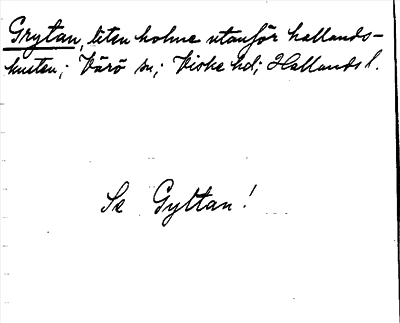 Grytan, liten holme utanför hallands-
kusten; Värö sn; Viske hd; Hallands l.
Se Gyltan!